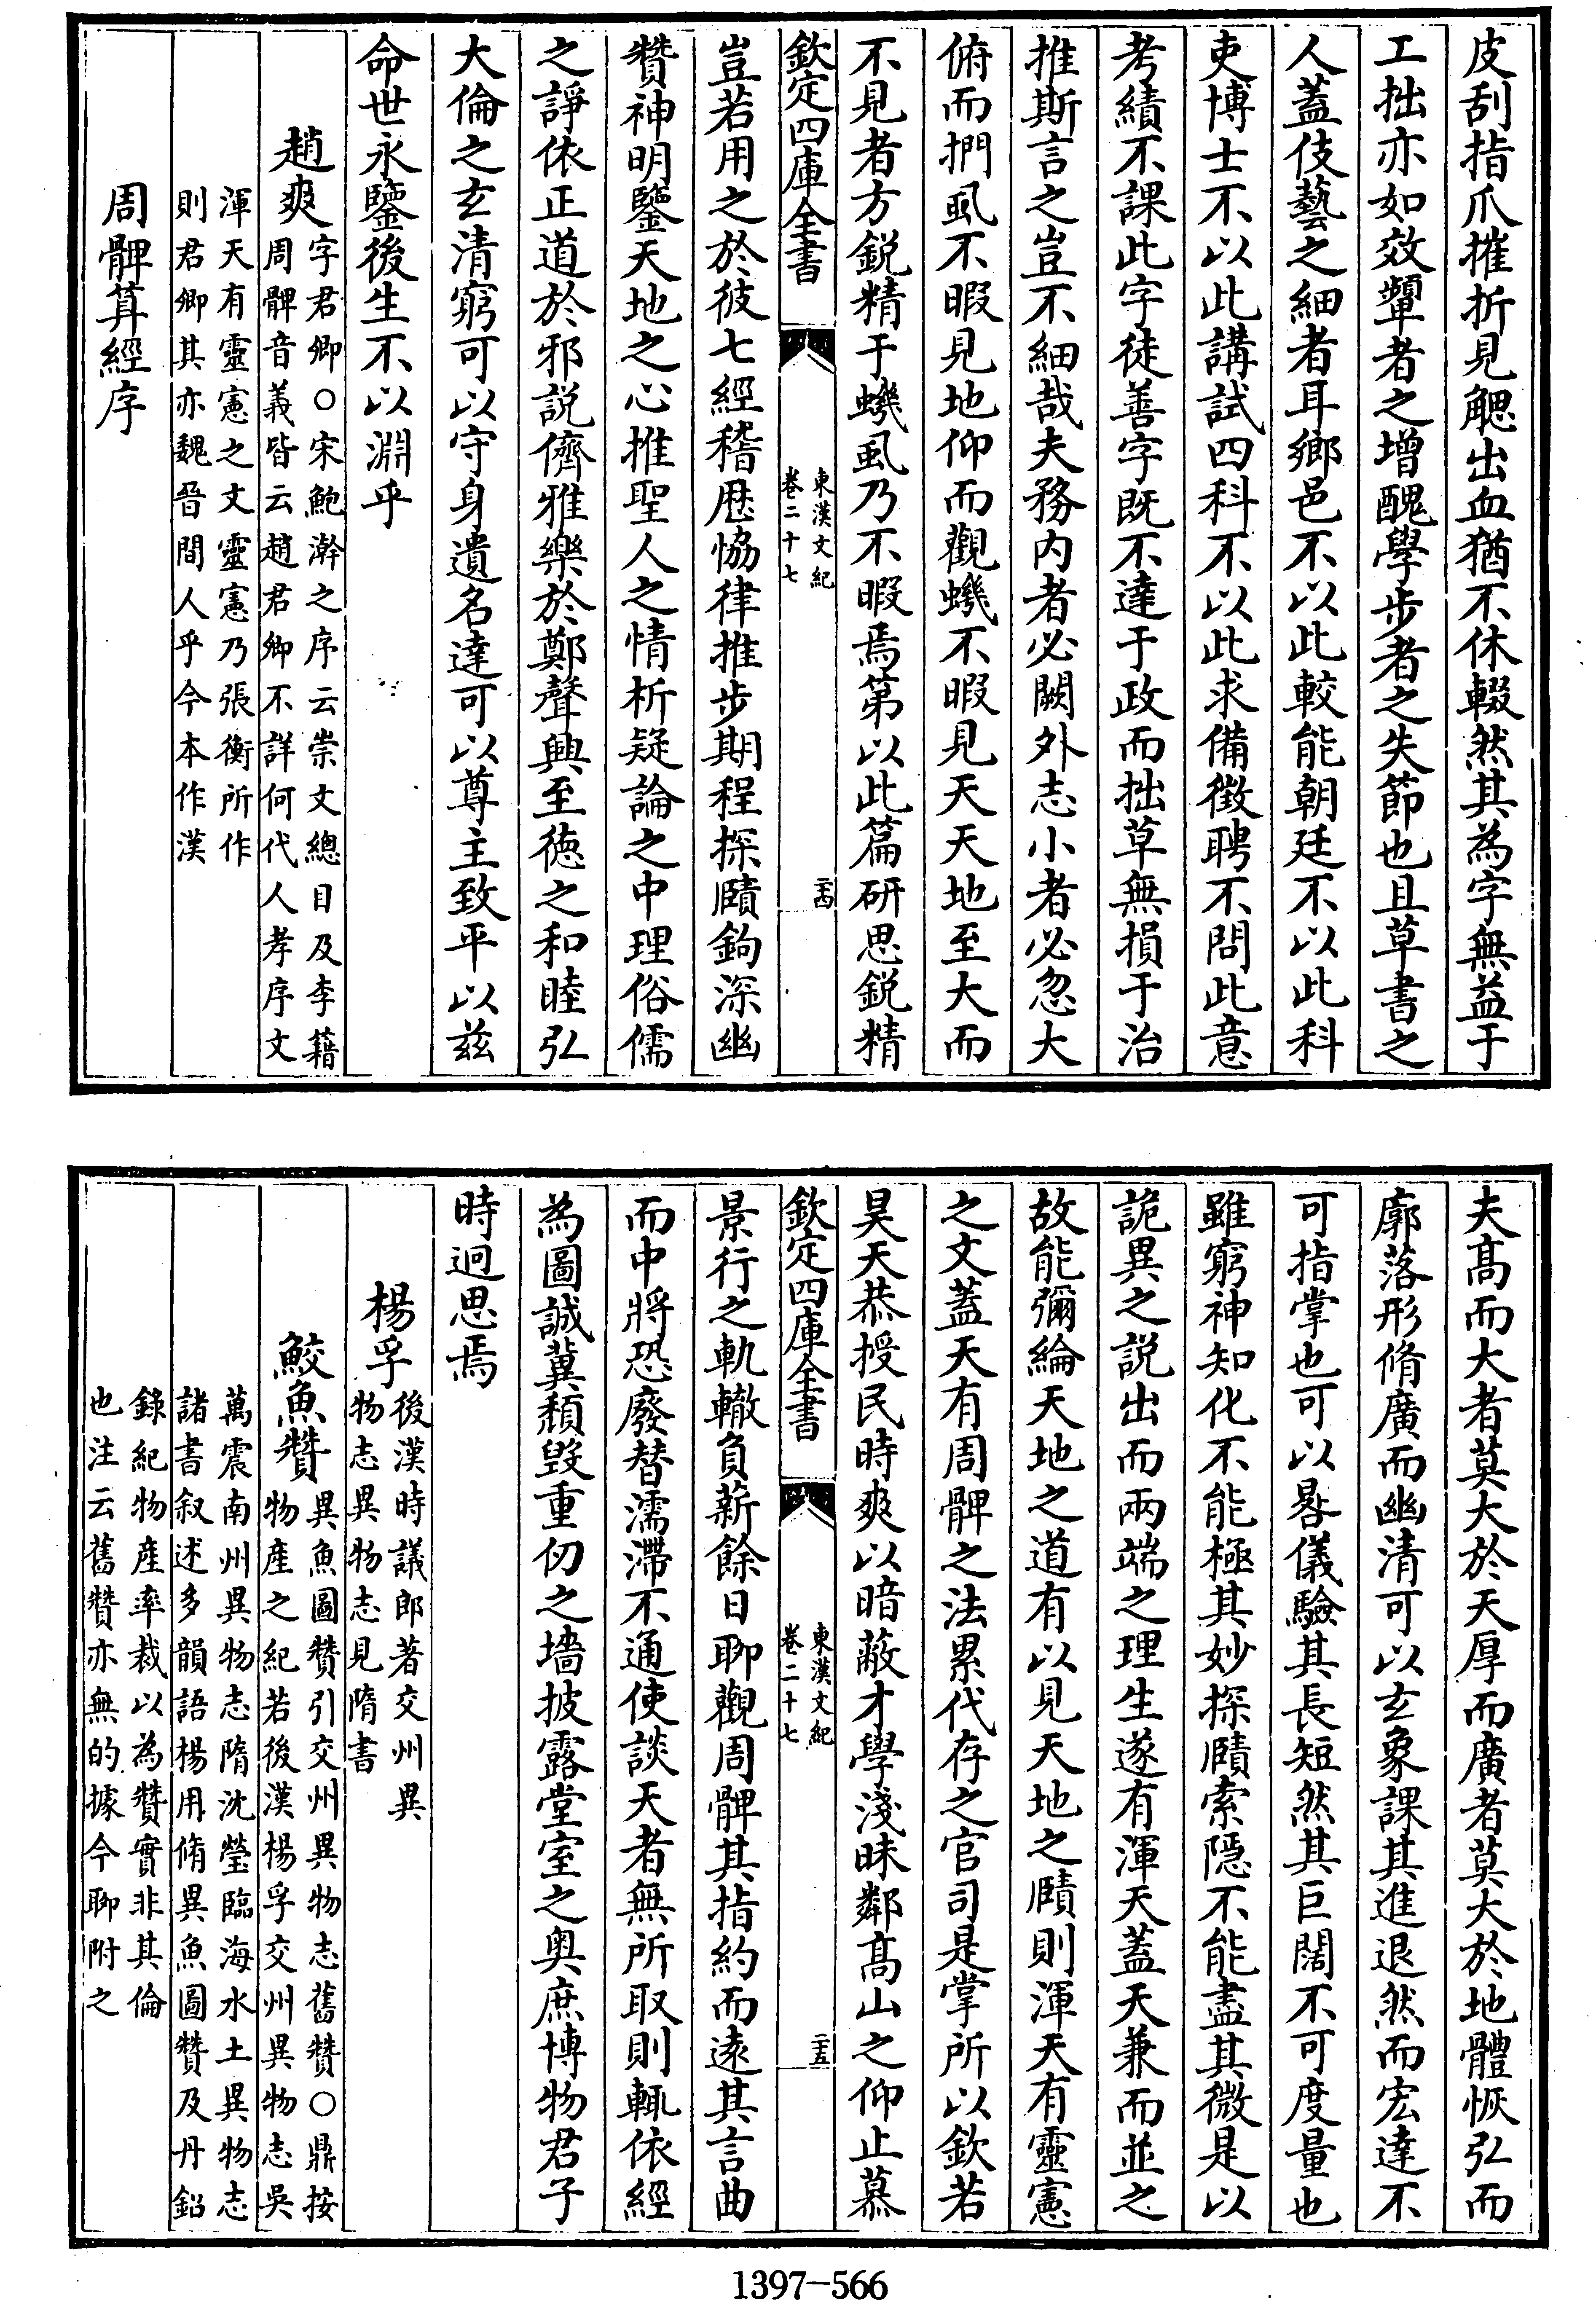 皮刮指爪摧折見䚡出血猶不休輟然其為字無益于
工拙亦如效顰者之增醜學步者之失節也且草書之
人蓋伎藝之細者耳鄉邑不以此較能朝廷不以此科
吏博士不以此講試四科不以此求備徴聘不問此意
考績不課此字徒善字既不達于政而拙草無損于治
推斯言之豈不細哉夫務内者必闕外志小者必忽大
俯而捫虱不暇見地仰而觀蟣不暇見天天地至大而
不見者方鋭精于蟣虱乃不暇焉第以此篇研思鋭精
欽定四庫全書
東漢文紀
卷二十七
二十四
豈若用之於彼七經稽厯恊律推步期程探賾鉤深幽
贊神明鑒天地之心推聖人之情析疑論之中理俗儒
之諍依正道於邪説儕雅樂於鄭聲興至徳之和睦弘
大倫之玄清窮可以守身遺名達可以尊主致平以兹
命世永鑒後生不以淵乎
趙爽
字君卿○宋鮑澣之序云崇文總目及李籍
周髀音義皆云趙君卿不詳何代人孝序文
渾天有靈憲之文靈憲乃張衡所作
則君卿其亦魏晉間人乎今本作漢
周髀算經序
夫髙而大者莫大於天厚而廣者莫大於地體恢弘而
廓落形脩廣而幽清可以玄象課其進退然而宏達不
可指掌也可以晷儀驗其長短然其巨闊不可度量也
雖窮神知化不能極其妙探賾索隱不能盡其微是以
詭異之説出而兩端之理生遂有渾天蓋天兼而並之
故能彌綸天地之道有以見天地之賾則渾天有靈憲
之文蓋天有周髀之法累代存之官司是掌所以欽若
昊天恭授民時爽以暗蔽才學淺昧鄰髙山之仰止慕
欽定四庫全書
東漢文紀
卷二十七
二十五
景行之軌轍負薪餘日聊觀周髀其指約而遠其言曲
而中將恐廢替濡滯不通使談天者無所取則輒依經
為圖誠冀頽毁重仞之墻披露堂室之奥庶博物君子
時迥思焉
楊孚
後漢時議郎著交州異
物志異物志見隋書
鮫魚贊
異魚圖贊引交州異物志舊贊○鼎按
物産之紀若後漢楊孚交州異物志吳
萬震南州異物志隋沈瑩臨海水土異物志
諸書叙述多韻語楊用脩異魚圖贊及丹鉛
錄紀物産率裁以為贊實非其倫
也注云舊贊亦無的據今聊附之
1397-566